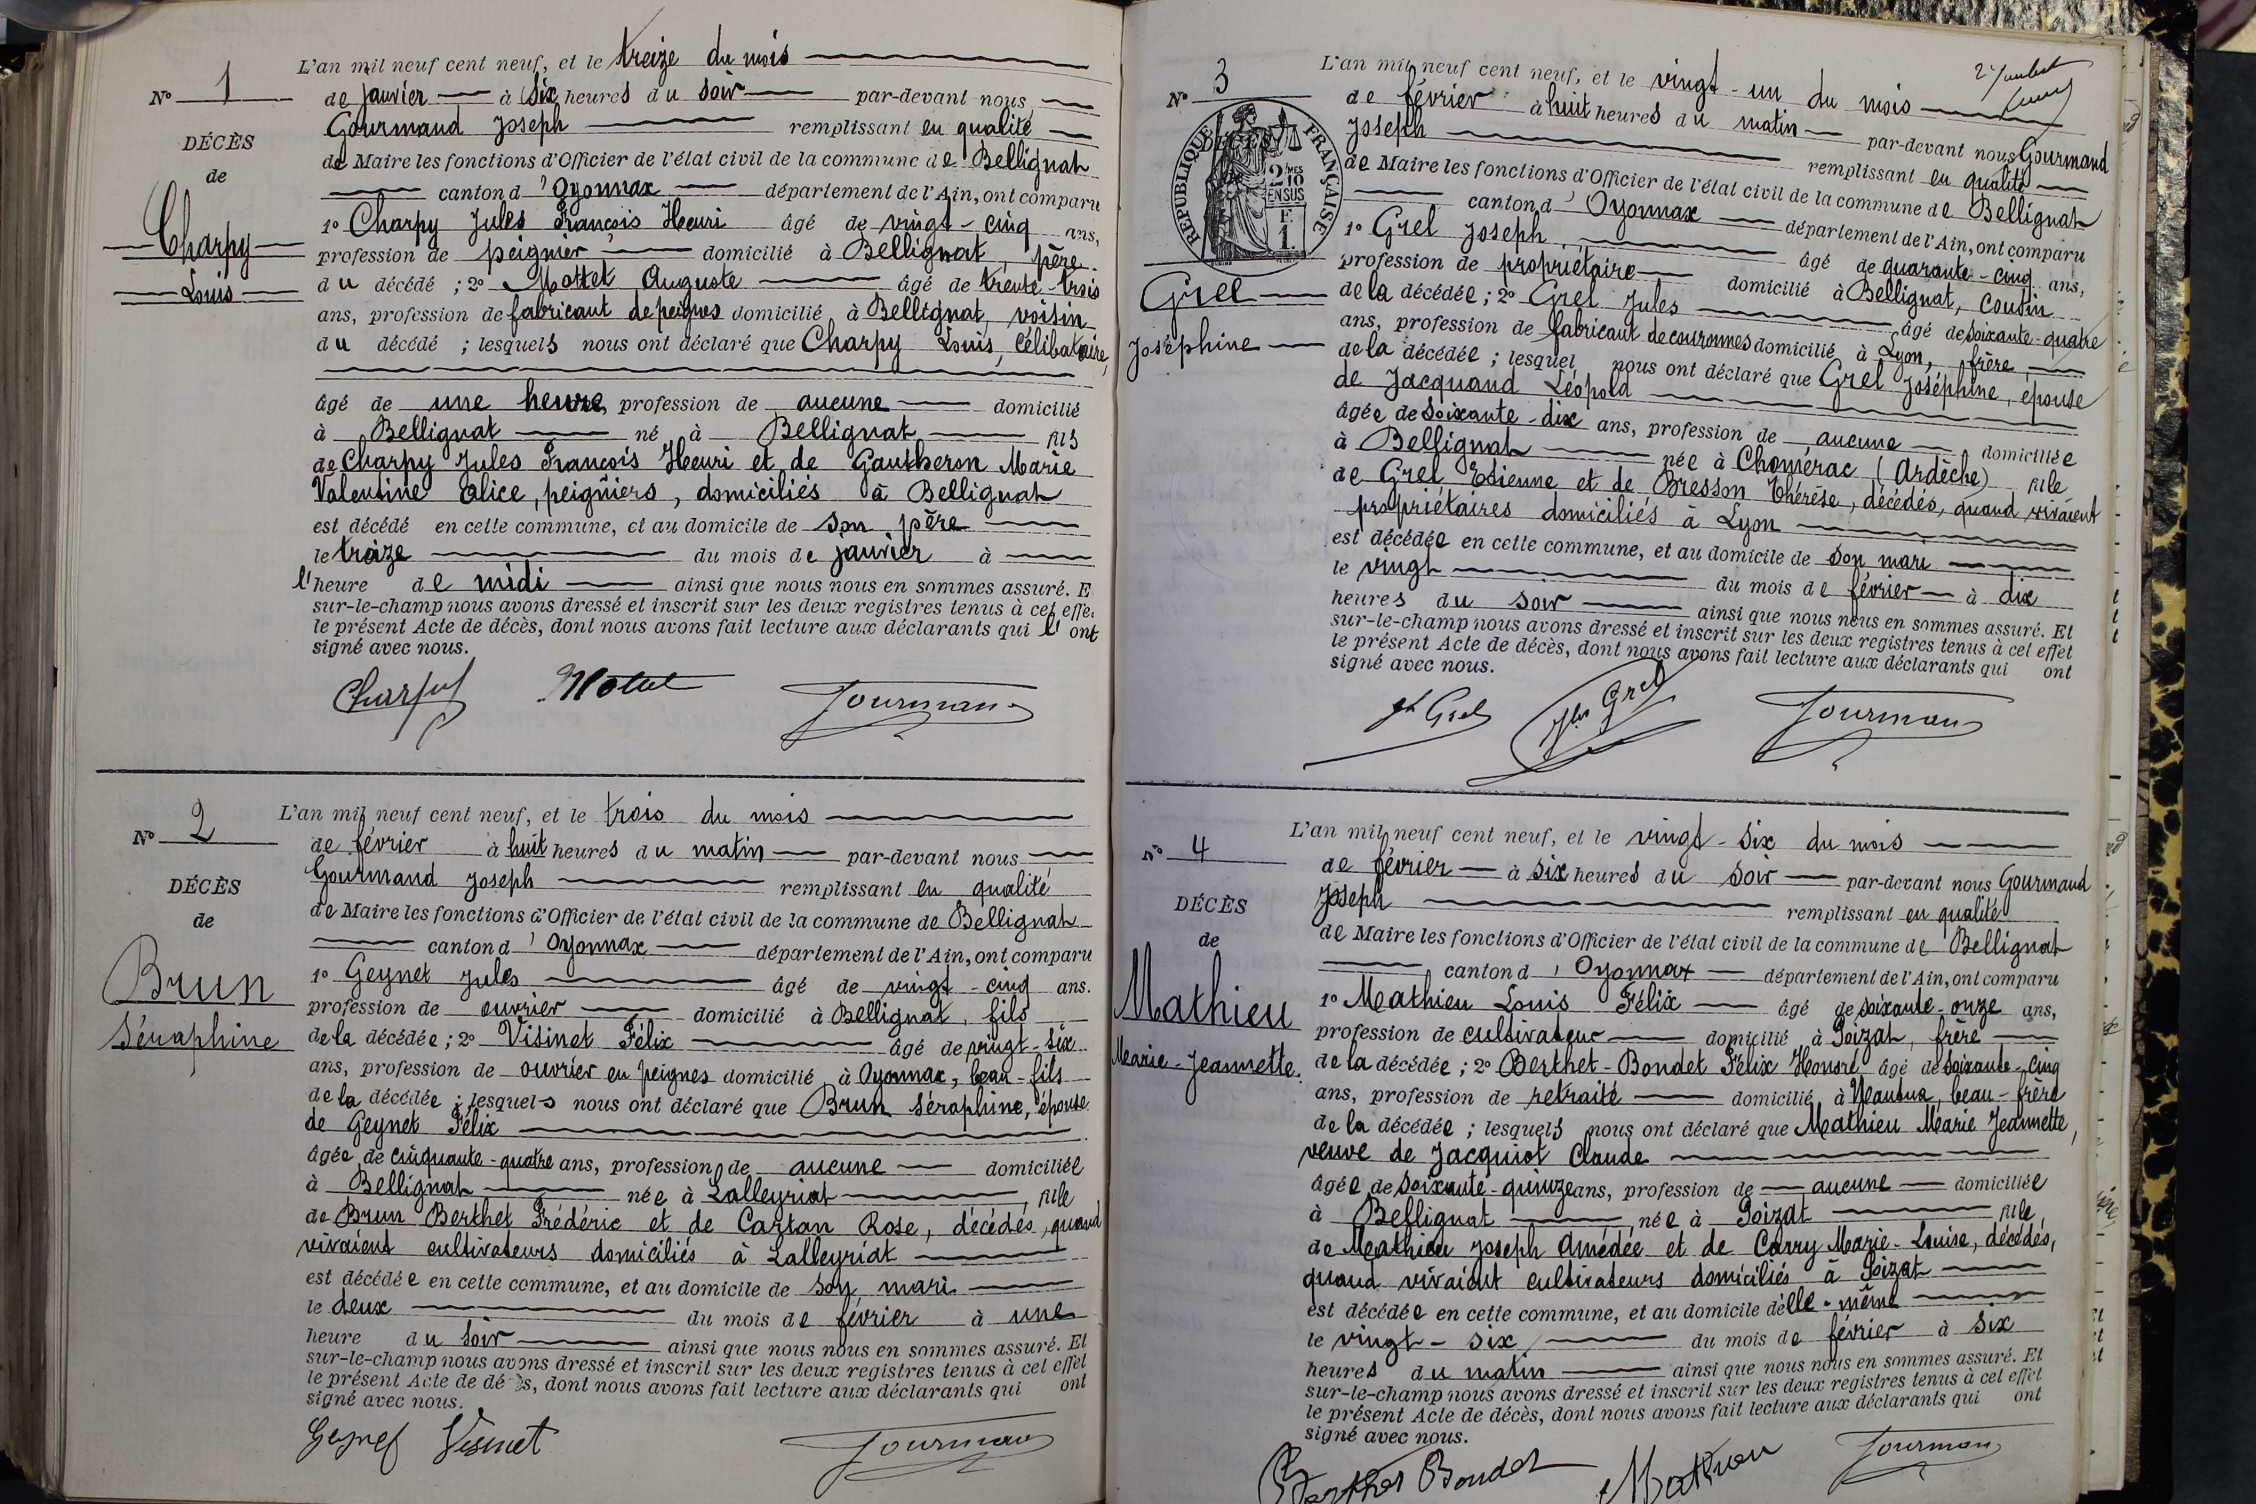 N° 1
DÉCÈS
de
Charpy
Louis
L'an mil neuf cent neuf, et le treize du mois
de janvier à six heures du soir par-devant nous
Gourmand Joseph remplissant en qualité
de Maire les fonctions d'Officier de l'état civil de la commune de Bellignat
canton d'Oyonnax département de l'Ain, ont comparu
1° Charpy Jules François Henri âgé de vingt-cinq ans,
profession de peignier domicilié à Bellignat, père
du décédé ; 2° Mottet Auguste âgé de trente-trois
ans, profession de fabricant de peignes domicilié à Bellignat, voisin
du décédé ; lesquels nous ont déclaré que Charpy Louis, célibataire,
âgé de une heure, profession de aucune domicilié
à Bellignat né à Bellignat fils
de Charpy Jules François Henri et de Gautheron Marie
Valentine Alice, peigniers, domiciliés à Bellignat
est décédé en cette commune, et au domicile de son père
le treize du mois de janvier à
l'heure de midi ainsi que nous nous en sommes assuré. E
sur-le-champ nous avons dressé et inscrit sur les deux registres tenus à cet effe
le présent Acte de décès, dont nous avons fait lecture aux déclarants qui l'ont
signé avec nous.
Charpy Mottet Gourmand
N° 2
DÉCÈS
de
Brun
Séraphine
L'an mil neuf cent neuf, et le trois du mois
de février à huit heures du matin par-devant nous
Gourmand Joseph remplissant en qualité
de Maire les fonctions d'Officier de l'état civil de la commune de Bellignat
canton d'Oyonnax département de l'Ain, ont comparu
1° Geynet Jules âgé de vingt-cinq ans.
profession de ouvrier domicilié à Bellignat, fils
de la décédée ; 2° Visinet Félix âgé de vingt-six
ans, profession de ouvrier en peignes domicilié à Oyonnax, beau-fils
de la décédée ; lesquels nous ont déclaré que Brun Séraphine, épouse
de Geynet Félix
âgée de cinquante-quatre ans, profession de aucune domiciliée
à Bellignat née à Lalleyriat, fille
de Brun Berthet Frédéric et de Cartan Rose, décédés, quand
vivaient cultivateurs domiciliés à Lalleyriat
est décédée en cette commune, et au domicile de son mari
le deux du mois de février à une
heure du soir ainsi que nous nous en sommes assuré. Et
sur-le-champ nous avons dressé et inscrit sur les deux registres tenus à cet effet
le présent Acte de décès, dont nous avons fait lecture aux déclarants qui ont
signé avec nous.
Geynet Visinet Gourmand
N° 3
DÉCÈS
RÉPUBLIQUE FRANÇAISE
2 MES
10
EN SUS
F
1
Grel
Joséphine
L'an mil neuf cent neuf, et le vingt-un du mois
de février à huit heures du matin par-devant nous Gourmand
Joseph remplissant en qualité
de Maire les fonctions d'Officier de l'état civil de la commune de Bellignat
canton d'Oyonnax département de l'Ain, ont comparu
1° Grel Joseph âgé de quarante-cinq ans,
profession de propriétaire domicilié à Bellignat, cousin
de la décédée ; 2° Grel Jules âgé de soixante-quatre
ans, profession de fabricant de couronnes domicilié à Lyon, frère
de la décédée ; lesquel nous ont déclaré que Grel Joséphine, épouse
de Jacquand Léopold
âgée de soixante-dix ans, profession de aucune domiciliée
à Bellignat née à Chomérac (Ardèche) fille
de Grel Etienne et de Bresson Thérèse, décédés, quand vivaient
propriétaires domiciliés à Lyon
est décédée en cette commune, et au domicile de son mari
le vingt du mois de février à dix
heures du soir ainsi que nous nous en sommes assuré. Et
sur-le-champ nous avons dressé et inscrit sur les deux registres tenus à cet effet
le présent Acte de décès, dont nous avons fait lecture aux déclarants qui ont
signé avec nous.
Grel Jles Grel Gourmand
N° 4
DÉCÈS
de
Mathieu
Marie-Jeannette.
L'an mil neuf cent neuf, et le vingt-six du mois
de février à six heures du soir par-devant nous Gourmand
Joseph remplissant en qualité
de Maire les fonctions d'Officier de l'état civil de la commune de Bellignat
canton d'Oyonnax département de l'Ain, ont comparu
1° Mathieu Louis Félix âgé de soixante-onze ans,
profession de cultivateur domicilié à Poizat, frère
de la décédée ; 2° Berthet-Bondet Félix Honoré âgé de soixante-cinq
ans, profession de retraité domicilié à Nantua, beau-frère
de la décédée ; lesquels nous ont déclaré que Mathieu Marie Jeannette,
veuve de Jacquiot Claude
âgée de soixante-quinze ans, profession de aucune domiciliée
à Bellignat, née à Poizat fille
de Mathieu Joseph Amédée et de Carry Marie-Louise, décédés,
quand vivaient cultivateurs domiciliés à Poizat
est décédée en cette commune, et au domicile d'elle-même
le vingt-six du mois de février à six
heures du matin ainsi que nous nous en sommes assuré. Et
sur-le-champ nous avons dressé et inscrit sur les deux registres tenus à cet effet
le présent Acte de décès, dont nous avons fait lecture aux déclarants qui ont
signé avec nous.
Berthet Bondet Mathieu Gourmand